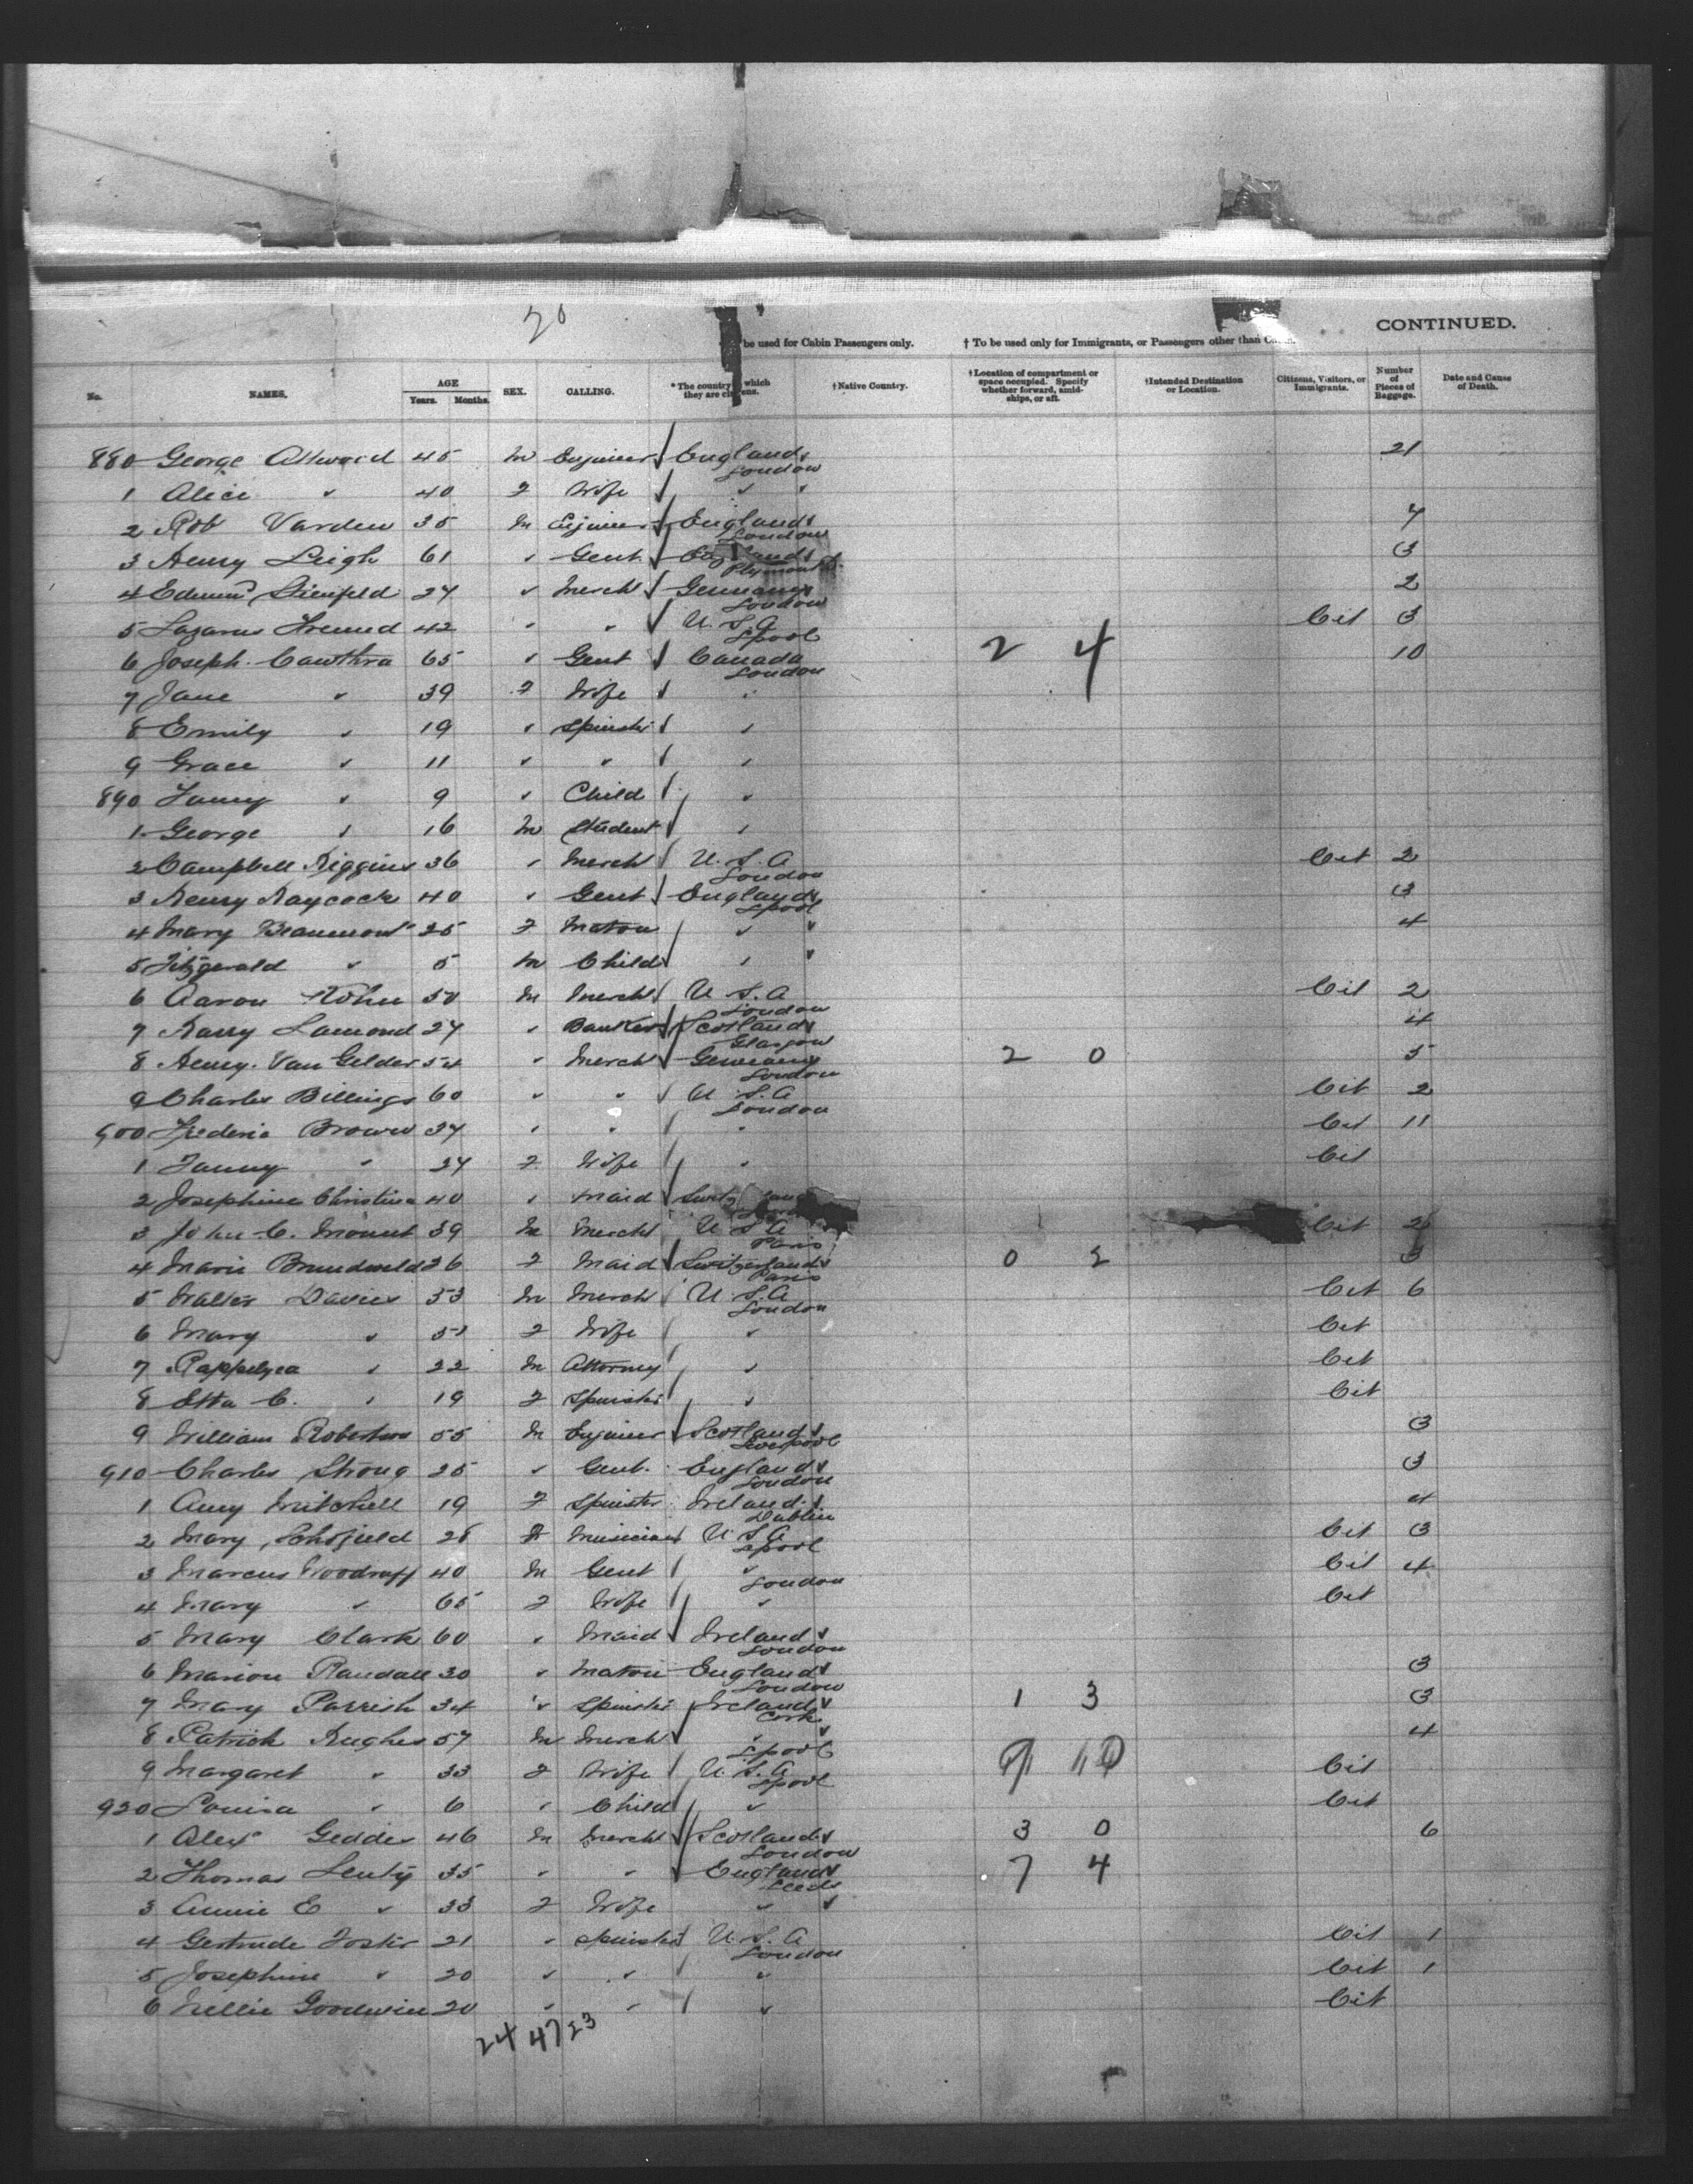 20
CONTINUED.
be used for Cabin Passengers only. † To be used only for Immigrants, or Passengers other than
No. NAMES. AGE Years. Months. SEX. CALLING. * The country which they are ci ens. † Native Country. † Location of compartment or space occupied. Specify whether forward, amidships, or aft. † Intended Destination or Location. Citizens, Visitors, or Immigrants. Number of Pieces of Baggage. Date and Cause of Death.
880 George Attwood 45 M Engineer England London 21
1 Alice " 40 F Wife " "
2 Rob Varden 35 M Engineer England London 4
3 Henry Leigh 61 " Gent. England Plymouth 3
4 24 " Merch Germany London 2
5 Lazarus 42 " " U.S.A Lpool Cit 3
6 Joseph Cawthra 65 " Gent Canada London 2 4 10
7 Jane " 39 F Wife "
8 Emily " 19 " Spinster "
9 Grace " 11 " " "
890 Fanny " 9 " Child "
1 George " 16 M Student "
2 Campbell Higgins 36 " Merch U.S.A London Cit 2
3 Henry Haycock 40 " Gent England Lpool 3
4 Mary Beaumont 25 F Matron " " 4
5 Fitzgerald " 5 M Child " "
6 Aaron 50 M Merch U.S.A London Cit 2
7 Harry Lamond 27 " Banker Scotland Glasgow 4
8 Henry Van Gelder 54 " Merch Germany London 2 0 5
9 Charles Billings 60 " " U.S.A London Cit 2
900 Frederic Brown 34 " " " Cit 11
1 Fanny " 24 F Wife " Cit
2 Josephine Christina 40 " Maid
3 John C. Mount 39 M Merch U.S.A Paris Cit 2
4 Marie 26 F Maid Switzerland Paris 0 2 3
5 Walter Davies 53 M Merch U.S.A London Cit 6
6 Mary " F Wife " Cit
7 Rappelyea " 22 M Attorney " Cit
8 Etta C. " 19 F Spinster " Cit
9 William Robertson 55 M Engineer Scotland Liverpool 3
910 Charles Strong 25 " Gent. England London 3
1 Amy Mitchell 19 F Spinster Ireland Dublin 4
2 Mary Schofield 28 F Musician U.S.A Lpool Cit 3
3 Marcus Woodruff 40 M Gent " London Cit 4
4 Mary " 65 F Wife " Cit
5 Mary Clark 60 " Maid Ireland London
6 Marion Randall 30 " Matron England London 3
7 Mary Parrish 34 " Spinster Ireland Cork 1 3 3
8 Patrick Hughes 57 M Merch " Lpool 4
9 Margaret " 33 F Wife U.S.A Lpool Cit
920 Louisa " 6 " Child " Cit
1 Alex Geddes 46 M Merch Scotland London 3 0 6
2 Thomas 35 " " England Leeds 7 4
3 Annie E " 33 F Wife " "
4 Gertrude Foster 21 " Spinster U.S.A London Cit 1
5 Josephine " 20 " " " Cit 1
6 Nellie Goodwin 20 " " " Cit
24 47 23